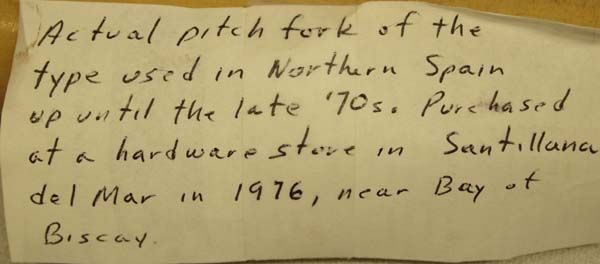 Actual pitch fork of the
type used in Northern Spain
up until the late '70s. Purchased
at a hardware store in Santillana
del Mar in 1976, near Bay of
Biscay.